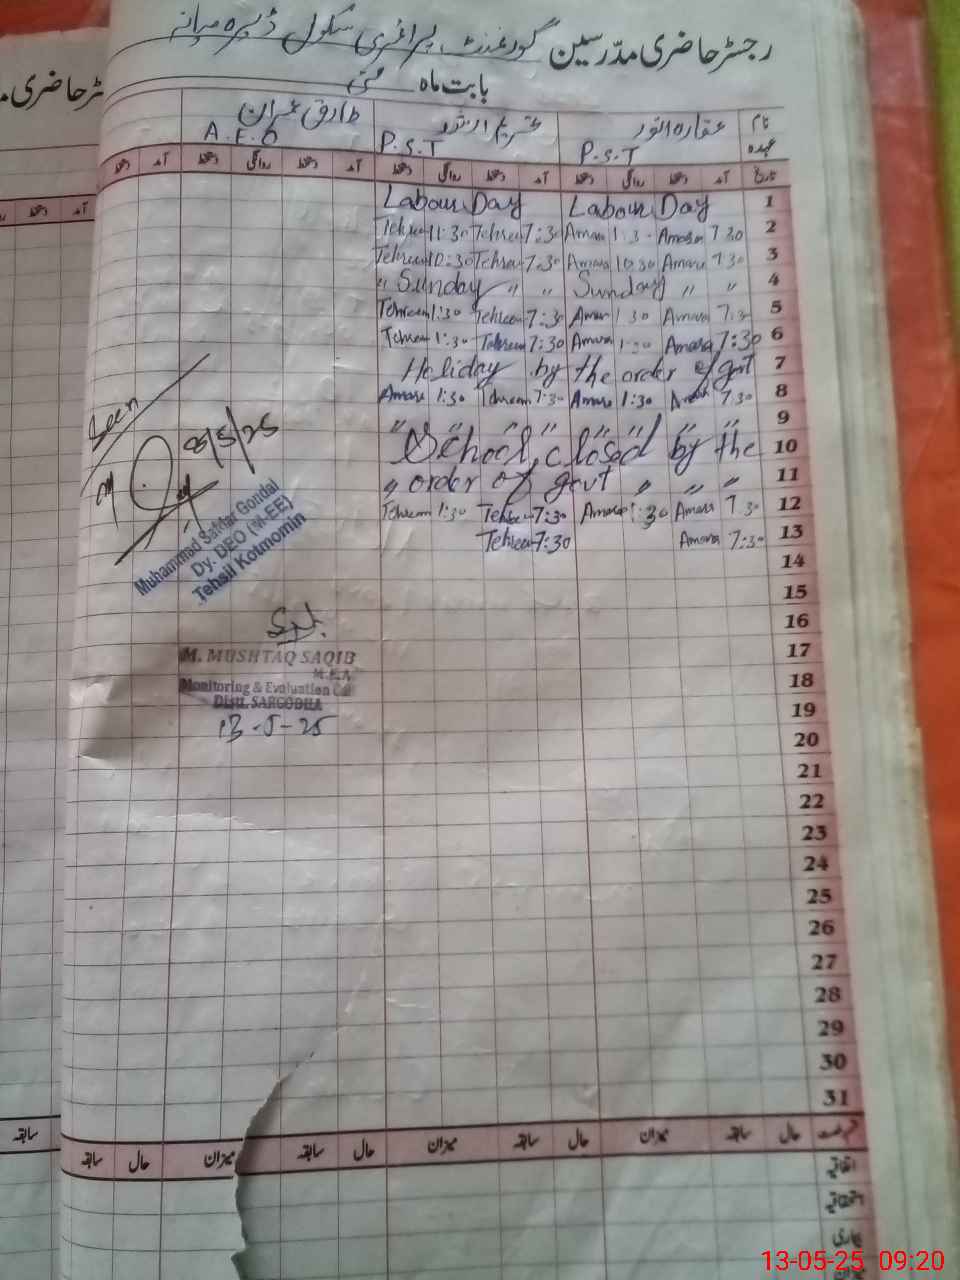 رجسٹر حاضری مدرسین گورنمنٹ پرائمری سکول ڈیرہ میانہ
بابت ماہ مئی
نام
عہدہ
P.S.T
P.S.T
طارق عمران
A.E.O
تاریخ آمد دستخط روانگی دستخط آمد دستخط روانگی دستخط آمد دستخط روانگی دستخط آمد دستخط
Labour Day Labour Day 1
Tehreem 11:30 Tehreem 7:30 Amara 1:3 Amara 7:30 2
Tehreem 10:30 Tehreem 7:30 Amara 10:30 Amara 7:30 3
" Sunday " " Sunday " " 4
Tehreem 1:30 Tehreem 7:30 Amara 1:30 Amara 7:3 5
Tehreem 1:30 Tehreem 7:30 Amara 1:30 Amara 7:30 6
Holiday by the order of govt 7
Amara 1:30 Tehreem 7:30 Amara 1:30 Amara 7:30 8
" " " " " " " " 9
School closed by the 10
" order of govt " " " 11
Tehreem 1:30 Tehreem 7:30 Amara 1:30 Amara 7:30 12
Tehreem 7:30 Amara 7:30 13
14
15
16
17
18
19
20
21
22
23
24
25
26
27
28
29
30
31
Seen
8/5/25
Muhammad Safdar Gondal
Dy. DEO (M-EE)
Tehsil Kotmomin
M. MUSHTAQ SAQIB
M.E.A
Monitoring & Evaluation Cell
Distt. SARGODHA
13-5-25
حال سابقہ میزان حال سابقہ میزان حال سابقہ میزان حال سابقہ
اتفاقیہ
استحقاقیہ
بیماری
میزان
ٹر حاضری
آمد دستخط
سابقہ
13-05-25 09:20